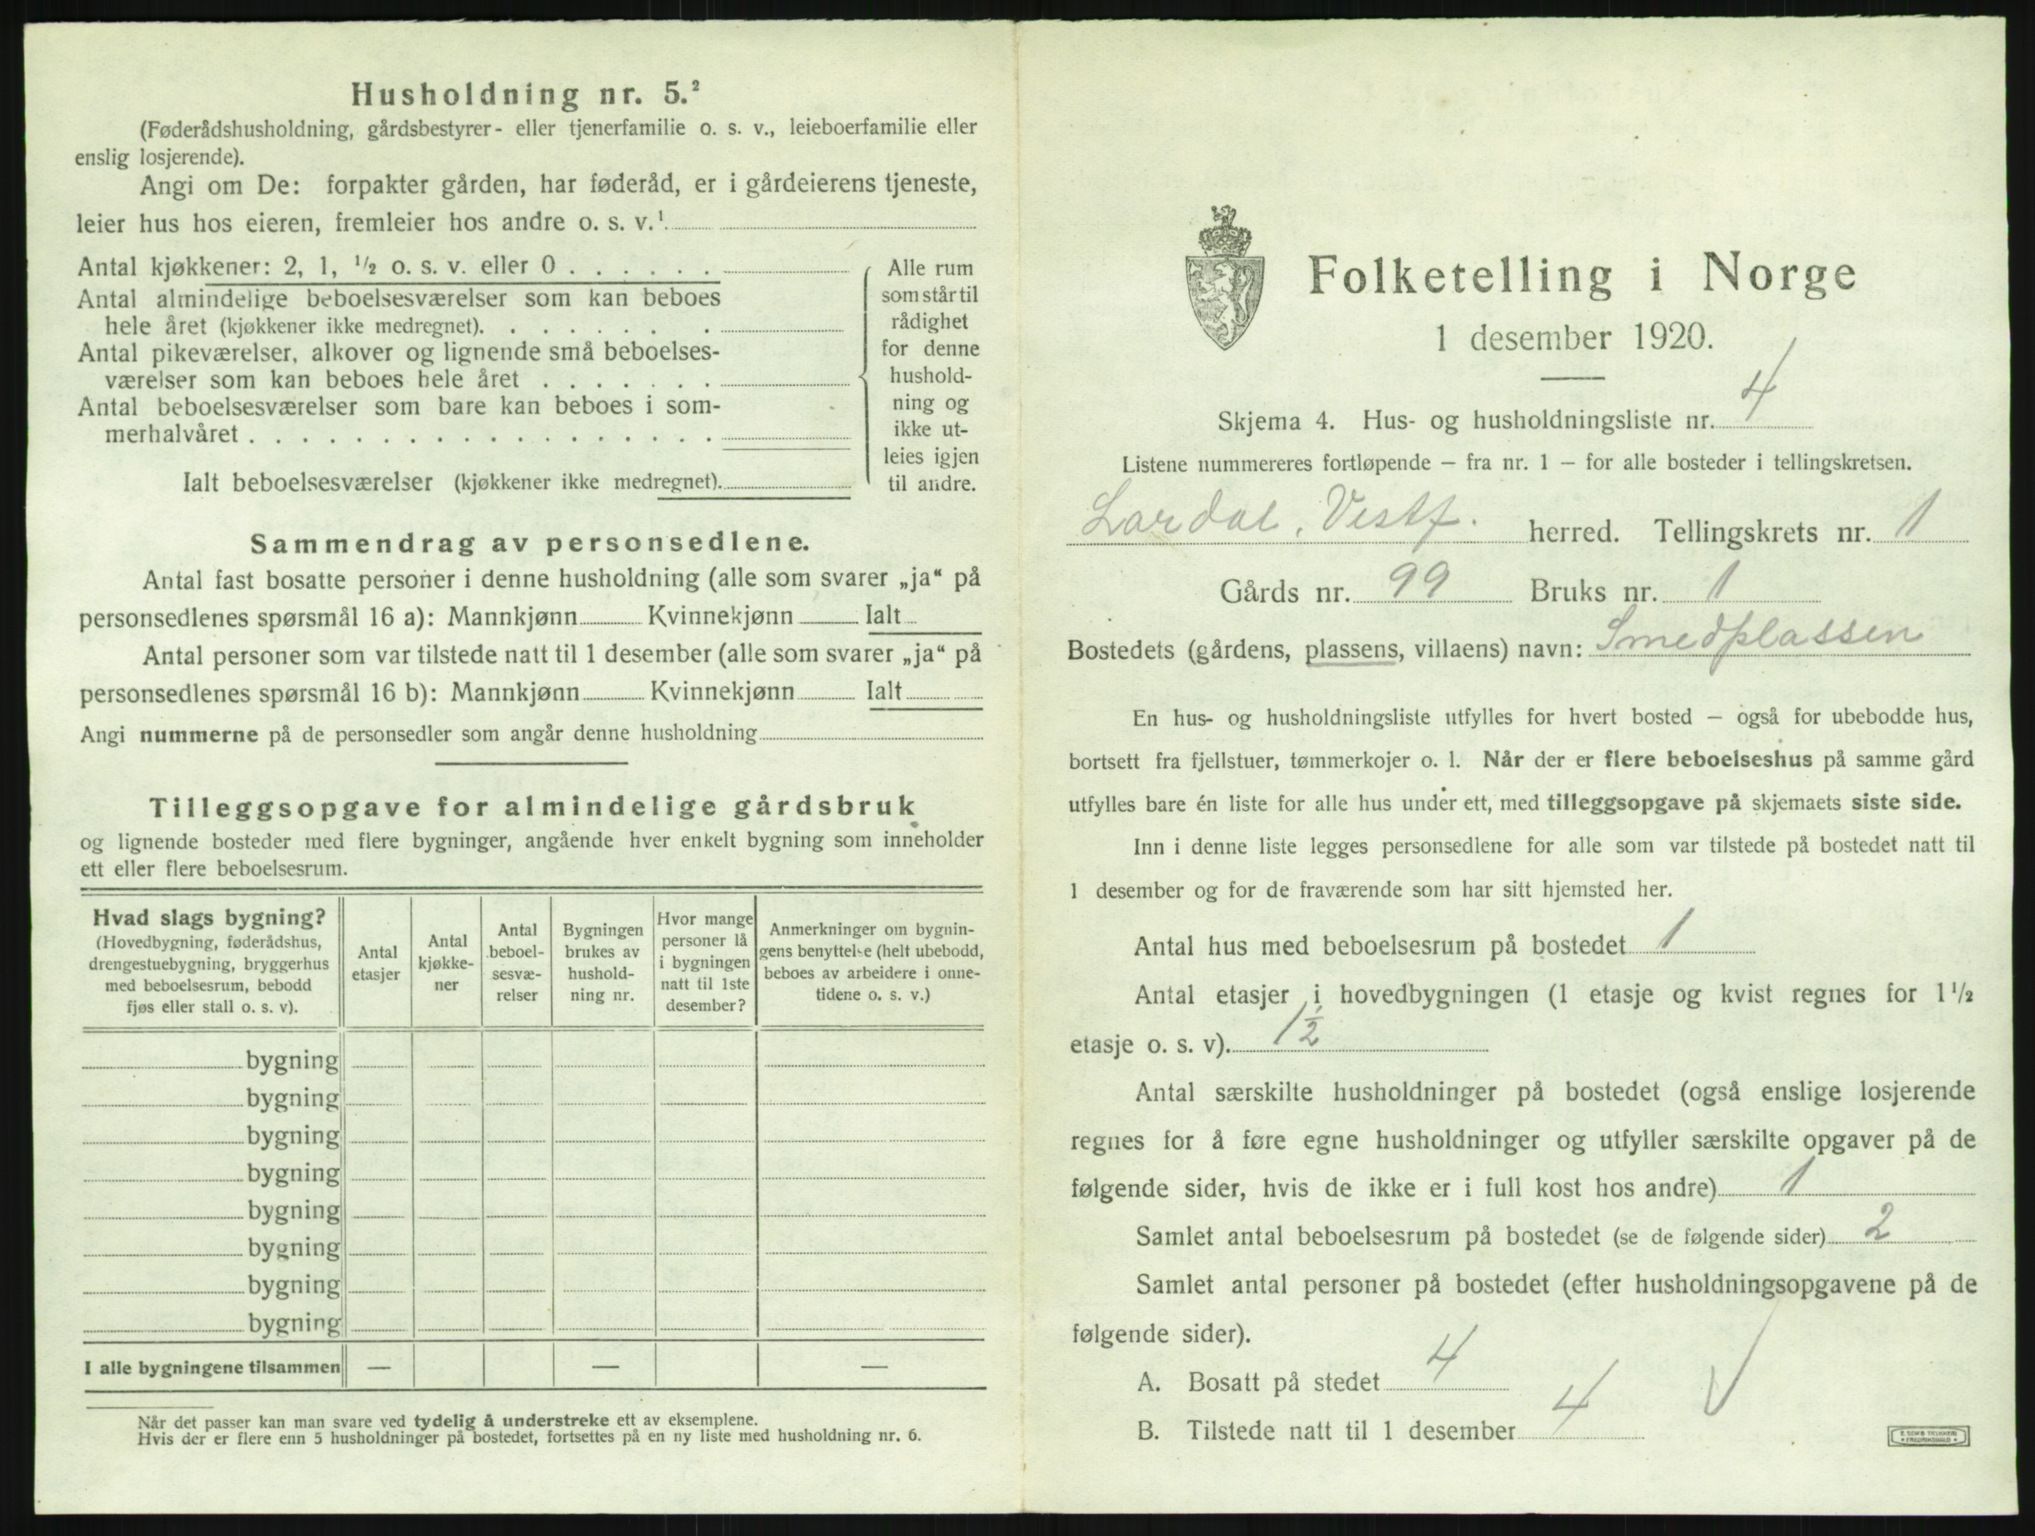 Husholdning nr. 5.²
(Føderådshusholdning, gårdsbestyrer- eller tjenerfamilie o. s. v., leieboerfamilie eller
enslig losjerende).
Angi om De: forpakter gården, har føderåd, er i gårdeierens tjeneste,
leier hus hos eieren, fremleier hos andre o. s. v.¹
Antal kjøkkener: 2, 1, ½ o. s. v. eller 0 . . . . . .
Antal almindelige beboelsesværelser som kan beboes
hele året (kjøkkener ikke medregnet). . . . . . . . .
Antal pikeværelser, alkover og lignende små beboelses-
værelser som kan beboes hele året . . . . . . .
Antal beboelsesværelser som bare kan beboes i som-
merhalvåret . . . . . . . . . . . . . . . . . .
Ialt beboelsesværelser (kjøkkener ikke medregnet).
Alle rum
som står til
rådighet
for denne
hushold-
ning og
ikke ut-
leies igjen
til andre.
Sammendrag av personsedlene.
Antal fast bosatte personer i denne husholdning (alle som svarer „ja“ på
personsedlenes spørsmål 16 a): Mannkjønn Kvinnekjønn Ialt
Antal personer som var tilstede natt til 1 desember (alle som svarer „ja“ på
personsedlenes spørsmål 16 b): Mannkjønn Kvinnekjønn Ialt
Angi nummerne på de personsedler som angår denne husholdning
Tilleggsopgave for almindelige gårdsbruk
og lignende bosteder med flere bygninger, angående hver enkelt bygning som inneholder
ett eller flere beboelsesrum.
Hvad slags bygning?
(Hovedbygning, føderådshus,
drengestuebygning, bryggerhus
med beboelsesrum, bebodd
fjøs eller stall o. s. v).
Antal
etasjer
Antal
kjøkke-
ner
Antal
beboel-
sesvæ-
relser
Bygningen
brukes av
hushold-
ning nr.
Hvor mange
personer lå
i bygningen
natt til 1ste
desember?
Anmerkninger om bygnin-
gens benyttelse (helt ubebodd,
beboes av arbeidere i onne-
tidene o. s. v.)
bygning
bygning
bygning
bygning
bygning
bygning
bygning
bygning
I alle bygningene tilsammen — — —
Når det passer kan man svare ved tydelig å understreke ett av eksemplene.
Hvis der er flere enn 5 husholdninger på bostedet, fortsettes på en ny liste med husholdning nr. 6.
Folketelling i Norge
1 desember 1920.
Skjema 4. Hus- og husholdningsliste nr. 4
Listene nummereres fortløpende – fra nr. 1 – for alle bosteder i tellingskretsen.
Lardal, Vestf. herred. Tellingskrets nr. 1
Gårds nr. 99 Bruks nr. 1
Bostedets (gårdens, plassens, villaens) navn: Smedplassen
En hus- og husholdningsliste utfylles for hvert bosted – også for ubebodde hus,
bortsett fra fjellstuer, tømmerkojer o. l. Når der er flere beboelseshus på samme gård
utfylles bare én liste for alle hus under ett, med tilleggsopgave på skjemaets siste side.
Inn i denne liste legges personsedlene for alle som var tilstede på bostedet natt til
1 desember og for de fraværende som har sitt hjemsted her.
Antal hus med beboelsesrum på bostedet 1
Antal etasjer i hovedbygningen (1 etasje og kvist regnes for 1½
etasje o. s. v). 1½
Antal særskilte husholdninger på bostedet (også enslige losjerende
regnes for å føre egne husholdninger og utfyller særskilte opgaver på de
følgende sider, hvis de ikke er i full kost hos andre) 1
Samlet antal beboelsesrum på bostedet (se de følgende sider) 2
Samlet antal personer på bostedet (efter husholdningsopgavene på de
følgende sider).
A. Bosatt på stedet 4
B. Tilstede natt til 1 desember 4